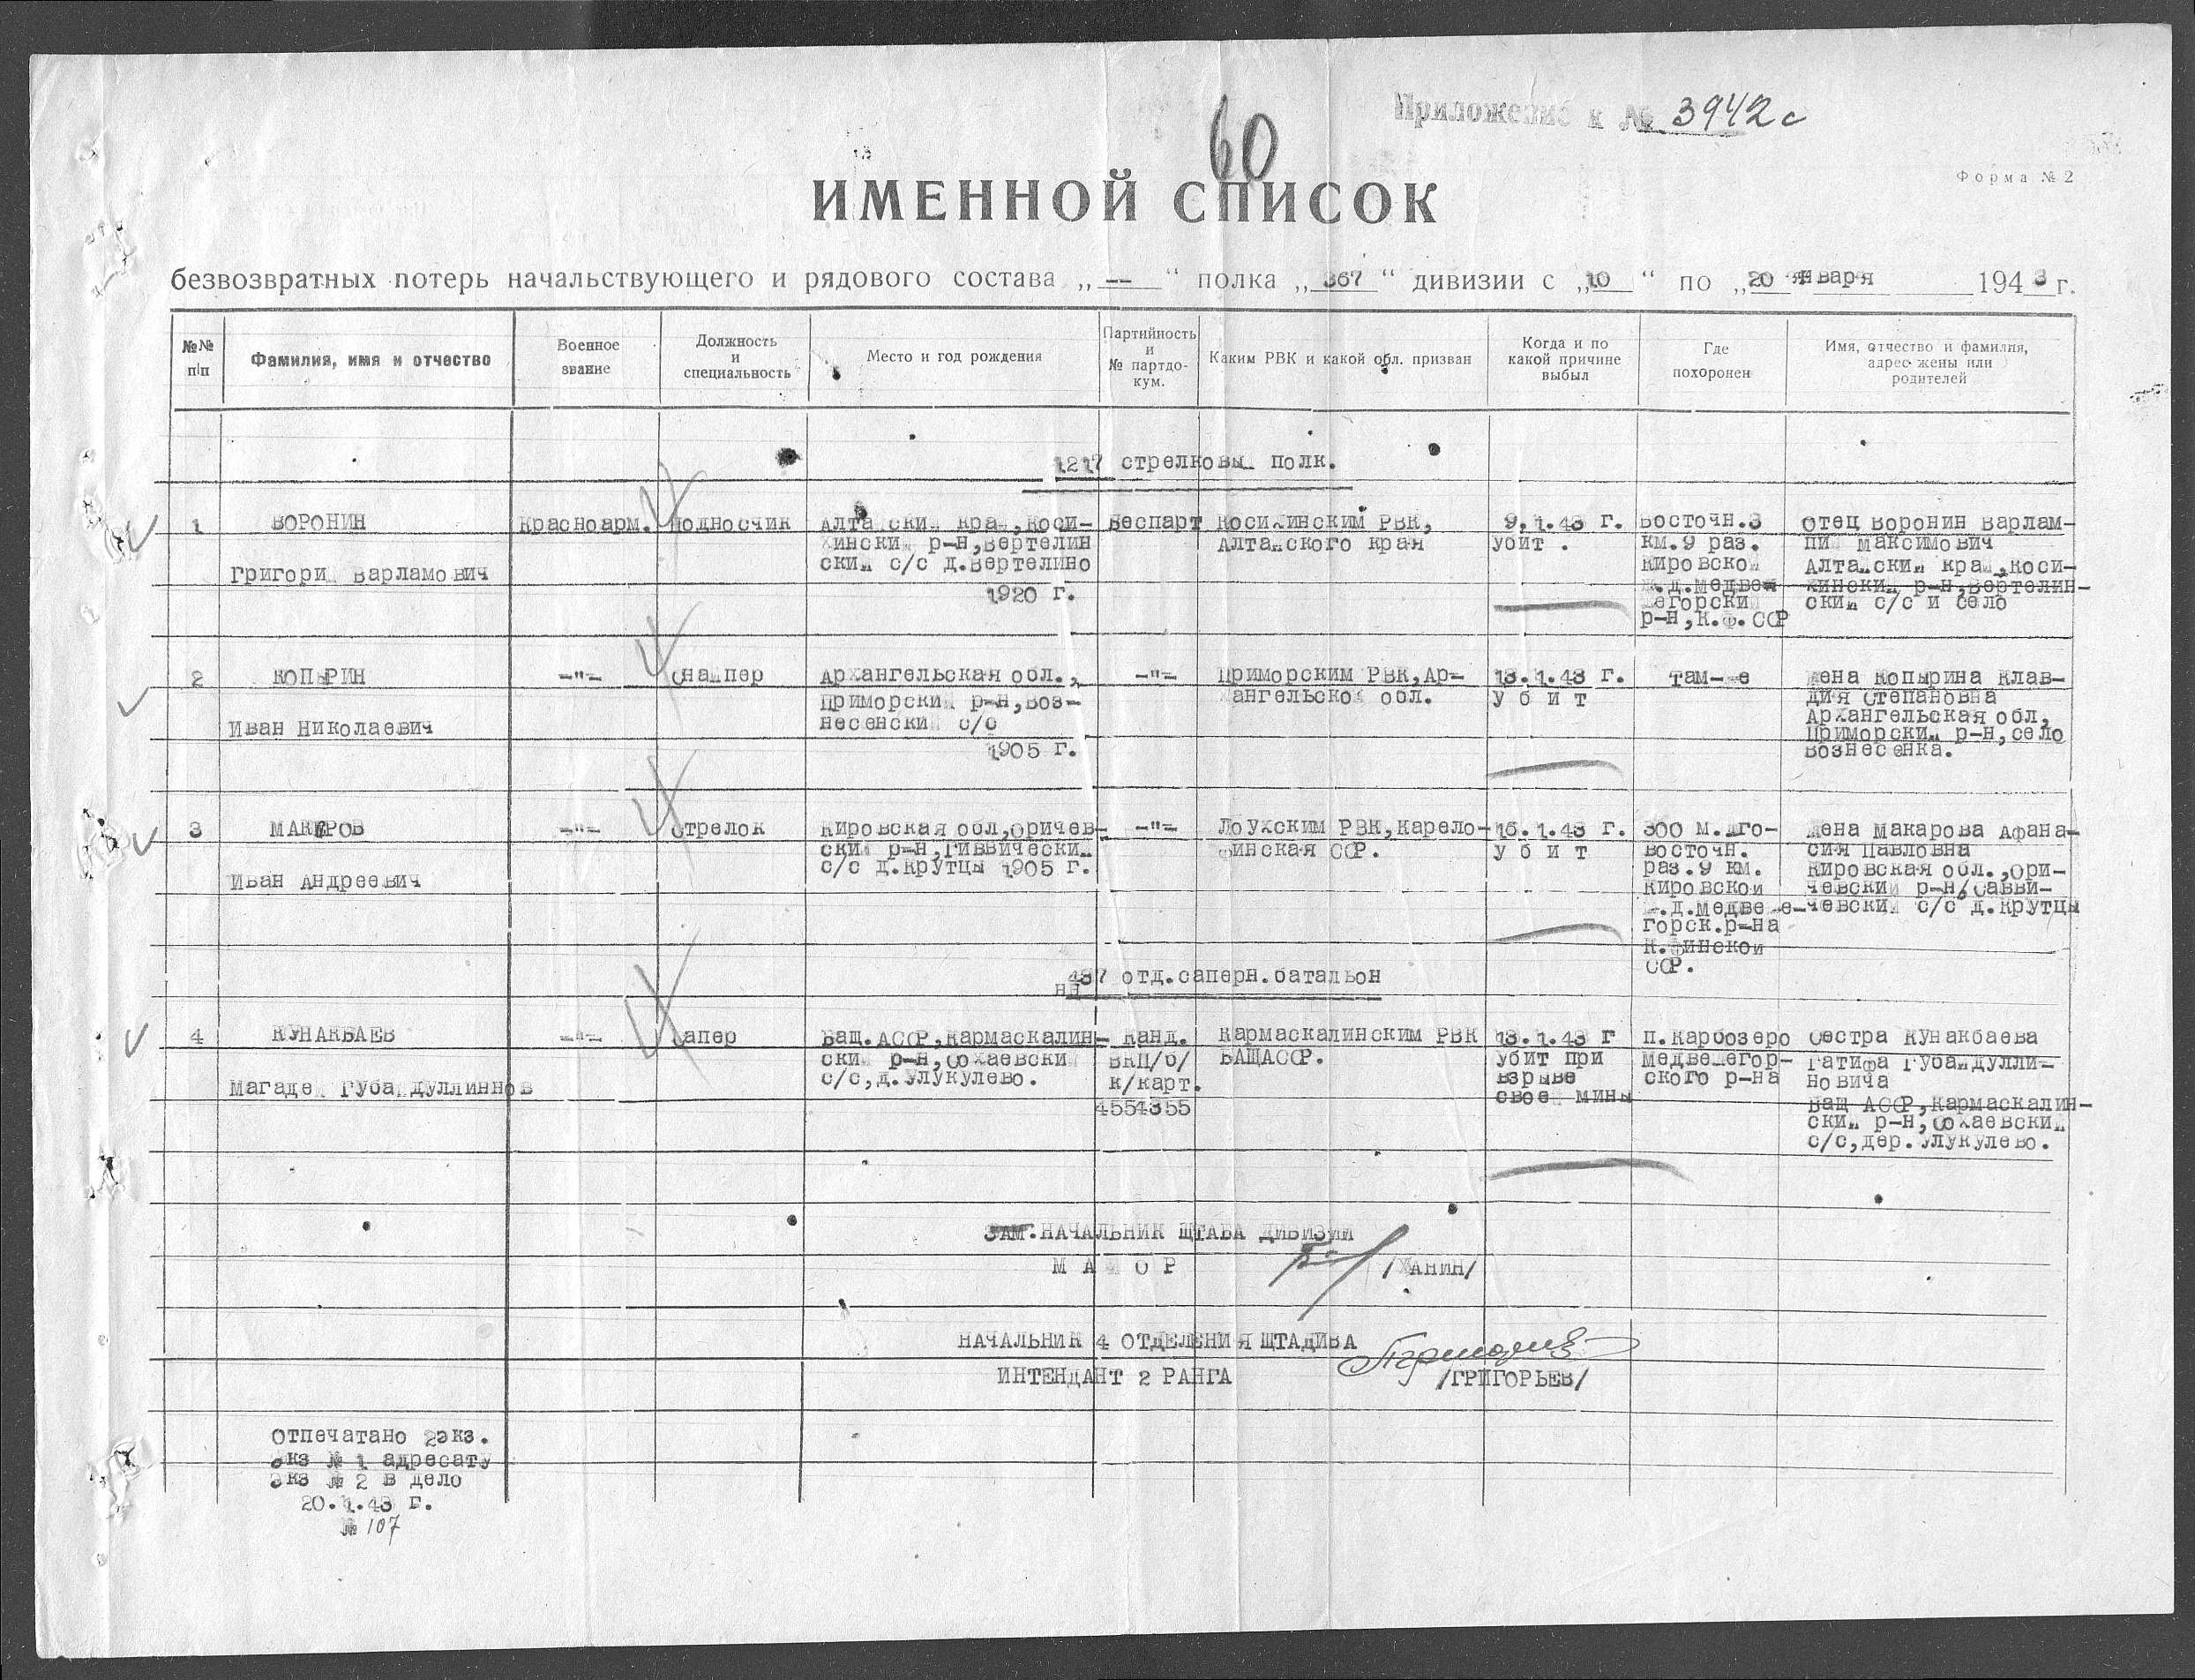 Приложение к № 3942с
60
Форма № 2
ИМЕННОЙ СПИСОК
безвозвратных потерь начальствующего и рядового состава „ -- “ полка „ 367 “ дивизии с „10 “ по „20 января 1943 г.
№№ п/п
Фамилия, имя и отчество
Военное звание
Должность и специальность
Место и год рождения
Партийность и № партдо-кум.
Каким РВК и какой обл. призван
Когда и по какой причине выбыл
Где похоронен
Имя, отчество и фамилия, адрес жены или родителей
1217 стрелковы полк.
1
ВОРОНИН
Григори Варламович
Красноарм.
Подносчик
Алтайский край, Коси-
хинский р-н, Вертелин
ский с/с д.Вертелино
1920 г.
Беспарт
Косихинским РВК,
Алтайского края
9.1.43 г.
убит .
Восточн.3
км.9 раз.
Кировской
ж.д.Медвеж
егорский
р-н, К.Ф.ССР
Отец Воронин Варлам-
пий Максимович
Алтайский край, Коси-
хинский р-н, Вертелин-
ский с/с и село
2
КОПЫРИН
Иван Николаевич
-"-
Снайпер
Архангельская обл.,
Приморский р-н, Воз-
несенский с/с
1905 г.
-"-
Приморским РВК, Ар-
хангельской обл.
13.1.43 г.
у б и т
Там-же
Жена Копырина Клав-
дия Степановна
Архангельская обл,
Приморский р-н, село
Вознесенка.
3
МАКАРОВ
Иван Андреевич
-"-
Стрелок
Кировская обл, Оричев-
ский р-н, Гиввический
с/с д.Крутцы 1905 г.
-"-
Лоухским РВК, Карело-
финская ССР.
15.1.43 г.
у б и т
300 м.юго-
восточн.
раз.9 км.
Кировской
ж.д.Медвеже-
горск.р-на
К.финской
ССР.
Жена Макарова Афана-
сия Павловна
Кировская обл.,Ори-
чевский р-н, Савви-
чевский с/с д.Крутцы
437 отд.саперн.батальон
4
КУНАКБАЕВ
Магадей Губайдуллинов
-"-
Сапер
Баш.АССР, Кармаскалин-
ский р-н, Сохаевский
с/с, д.Улукулево.
Канд.
ВКП/б/
к/карт.
4554355
Кармаскалинским РВК
БАШАССР.
13.1.43 г
убит при
взрыве
своей мины
п.Карбозеро
Медвежегор-
ского р-на
Сестра Кунакбаева
Гатифа Губайдулли-
новича
Баш АССР, Кармаскалин-
ский р-н, Сохаевский
с/с, дер.Улукулево.
ЗАМ.НАЧАЛЬНИК ШТАБА ДИВИЗИИ
М А Й О Р /ХАНИН/
НАЧАЛЬНИК 4 ОТДЕЛЕНИЯ ШТАДИВА
ИНТЕНДАНТ 2 РАНГА /ГРИГОРЬЕВ/
Отпечатано 2экз.
экз № 1 адресату
Экз № 2 в дело
20.1.43 г.
№ 107